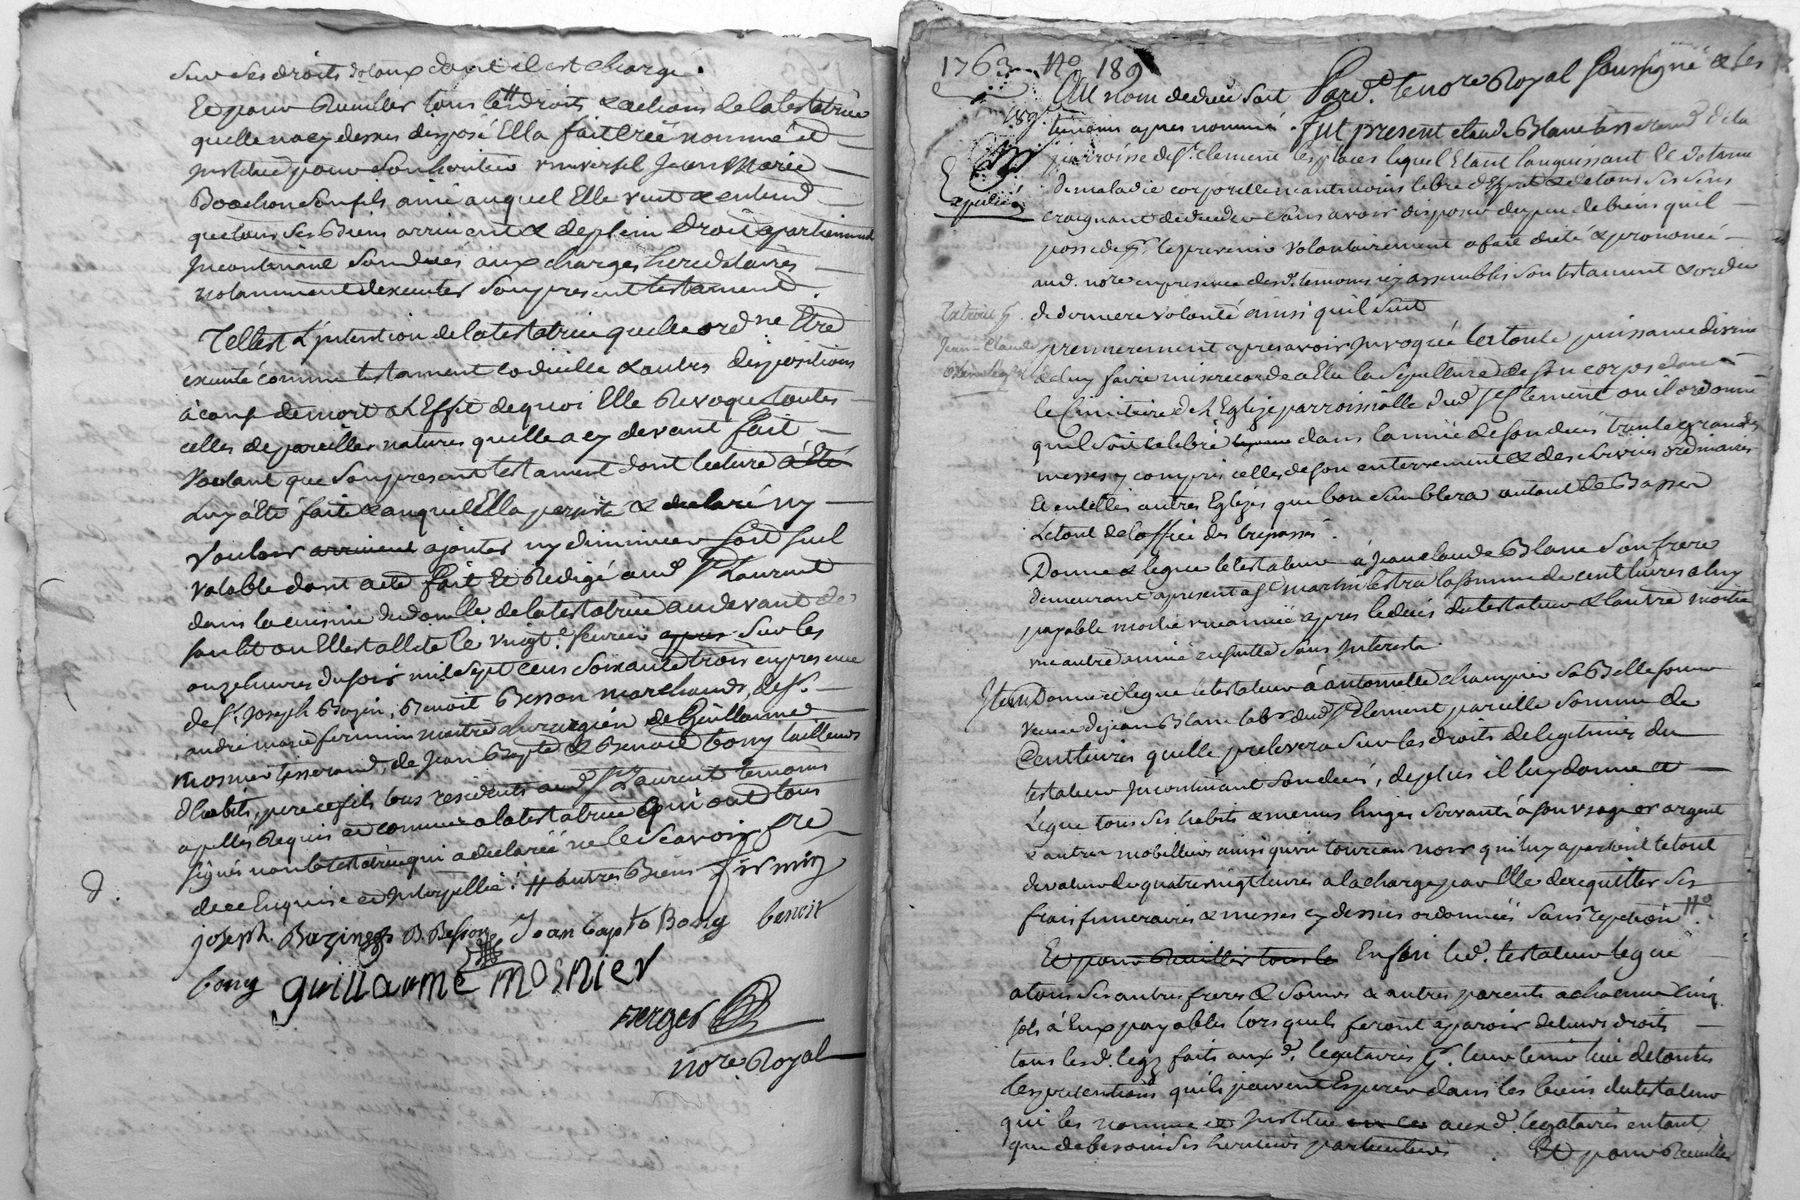 Sur ses droits dotaux dont il est chargé.
Et pour Recuillir tous les # droits & actions de la testatrice
quelle na cy dessus disposé Ella fait créé nommé et
Institué pour son heritier universel Jean Marie
Bonchon son fils ainé auquel Elle veut & entend
que tous ses Biens arrivent & de plein droit apartiennent
Incontinant son décés aux charges hereditaires
notamment dexecuter son present testament.
Telle est L'intention de la testatrice quelle ord.ne Etre
éxecuté comme testament codicille & autres dispositions
à cause de mort a L'Effet de quoi Elle Revoque toutes
celles de pareilles natures quelle a cy devant fait
Voulant que son present testament dont lecture a été
Luy a Eté faite & auquel Ella persisté & declaré ny
Vouloir ajouter ny diminuer soit seul
Valable dont acte fait Et Redigé aud St Laurent
dans la cuisine du domille de la testatrice au devant de
son lit ou Elle est allitée le vingt.e fevrier apres Sur les
onze heures du soir mil sept cens soixante trois en presence
de Sr. Joseph Bazin, Benoit Besson marchands, de Sr.
andré marie fermin maitre chirurgien de Guillaume
mosnier tisserand, de Jean Bapte & Benoit bony tailleurs
d'habits, pere et fils tous residents aud St Laurent temoins
apellés Requis et connus a la testatrice Qui ont tous
signés non la testatrice qui a declaréé ne le scavoir fre
de ce Enquise et Interpellée. # autres Biens firmin
joseph Bazin B. Besson Jean bapte Bony benoit
bony guillaume mosnier
verger
nore Royal
1763 No 189
Au nom de dieu soit Pard.t le nore Royal soussigné & les
189
temoins apres nommés. fut present claude Blanc tisserand de la
parroisse de St. clement les places lequel Etant languissant Et detenu
de maladie corporelle neantmoins libre d'Esprit & de tous ses sens
Expedié
craignant de deceder sans avoir disposer du peu de biens quil
possede pr. le prevenir volontairement a fait dicté & prononcé
aud. nore en presence desd. temoins icy assemblés son testament & ordce
de derniere volonté ainsi quil suit
Jean Claude
premierement apres avoir Invoquéé la toute puissance divine
de luy faire misericorde a Elu la sepulture de son corps dans
le Cimitiere de L'Eglize parroissialle dud St Clement ou il ordonne
quil soit celebré dans l'année de son décés trente grandes
messes y compris celles de son enterrement & des services ordinaires
Et en telles autres Eglizes que bon semblera autant de Basses
Le tout de l'office des trepassés.
Donne & legue le testateur à Jean claude Blanc son frere
demeurant apresent a St martin lestra la somme de cent livres a luy
payable moitié une année apres le decés du testateur & l'autre moitié
une autre année ensuitte sans Interests
Item Donne et legue le testateur à antoinette champier sa Belle soeur
veuve de jean Blanc labr dud St Clement pareille somme de
Cent livres quelle prelevera sur les droits de legitimes du
testateur Incontinant son decés, de plus il luy donne et
Legue tous ses habits & menus linges servants à son usage or argent
& autres mobilliers ainsi qu'un toureau noir qui luy apartient le tout
de valeur de quatre vingt livres a la charge par Elle dacquitter ses
frais funeraires & messes cy dessus ordonnées sans repetition #.
Et pour Recuillir tous le Enfin led. testateur legue
a tous ses autres freres & soeurs & autres parents a chacun cinq
sols à Eux payables lorsquils feront aparoir de leurs droits
tous lesd. legs faits auxd. legataires pr. leur tenir lieu de toutes
les pretentions quils peuvent Esperer dans les biens du testateur
qui les nomme et Institue auxd. legataires entant
que de besoin ses heritiers particuliers. Et pour Recuillir